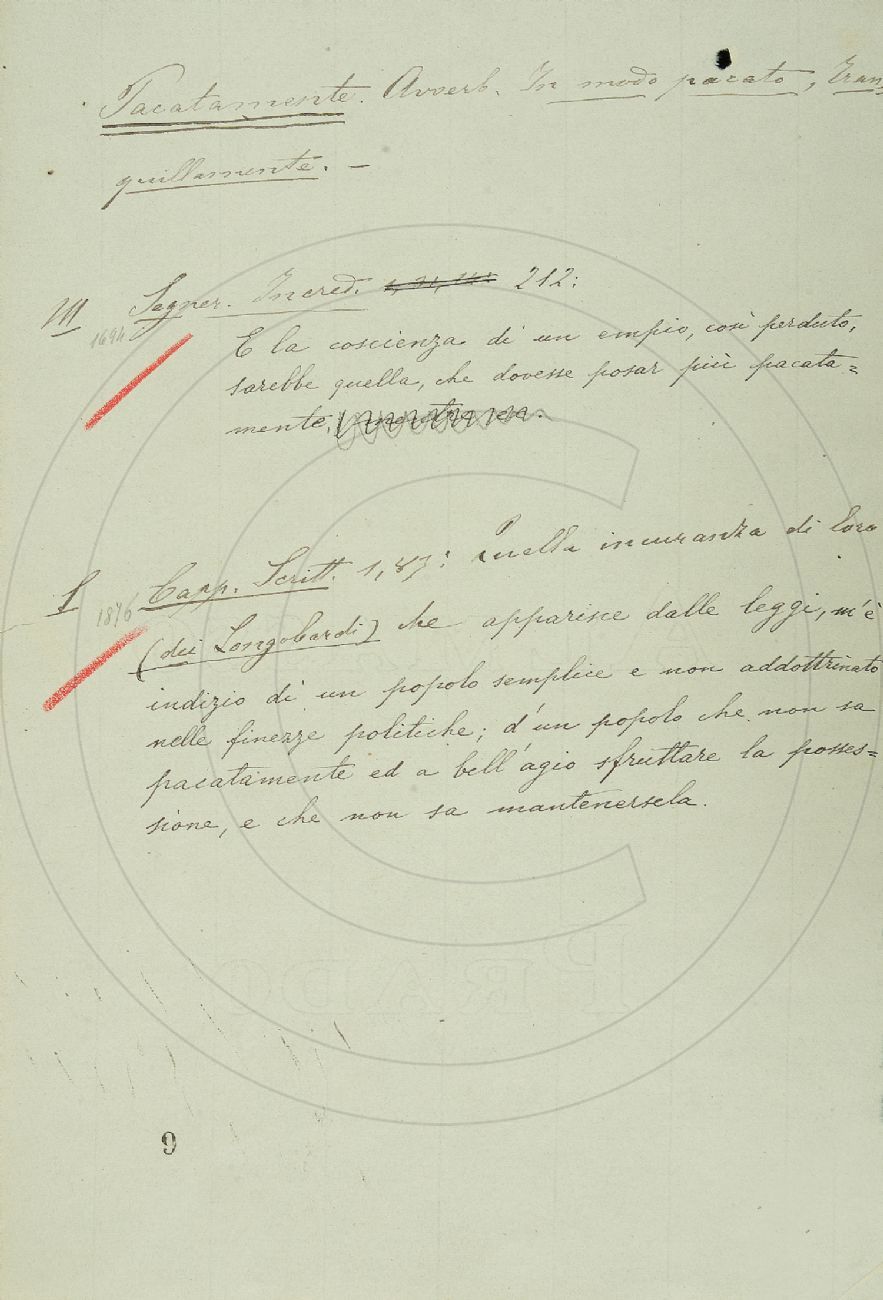 Pacatamente. Avverb. In modo pacato, Tran,
quillamente. –
III Segner. Incred. 212:
1694
E la coscienza di un empio, così perduto,
sarebbe quella, che dovesse posar più pacata=
mente.
I Capp. Scritt. 1,87: Quella incuranza di loro
1876
(dei Longobardi) che apparisce dalle leggi, m'è
indizio di un popolo semplice e non addottrinato
nelle finezze politiche; d'un popolo che non sa
pacatamente ed a bell'agio sfruttare la posses=
sione, e che non sa mantenersela.
PRADO
9